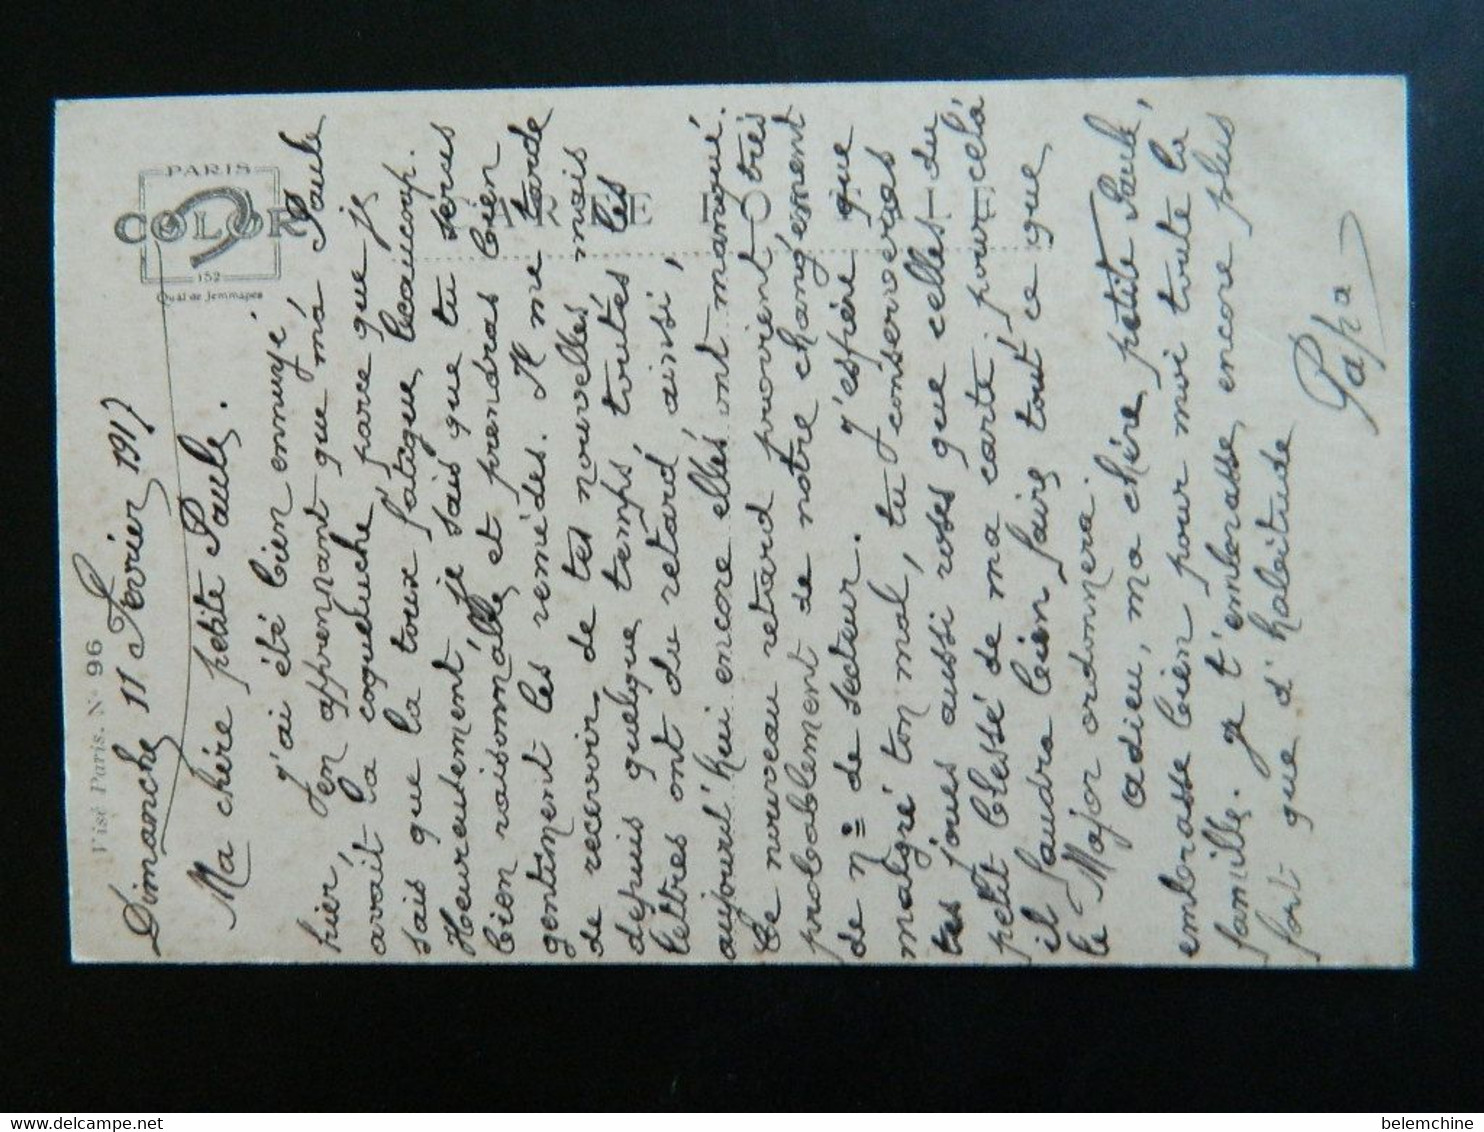 PARIS
COLOR
152
Quai de Jemmapes
CARTE POSTALE
Visé Paris. N° 96
Dimanche 11 Février 1917
Ma chère petite Paule.
J'ai été bien ennuyé
hier, en apprenant que ma Paule
avait la coqueluche parce que je
sais que la toux fatigue beaucoup.
Heureusement, je sais que tu seras
bien raisonnable et prendras bien
gentiment les remèdes. Il me tarde
de recevoir de tes nouvelles mais
depuis quelque temps toutes les
lettres ont du retard, ainsi,
aujourd'hui encore elles ont manqué.
Ce nouveau retard provient très
probablement de notre changement
de n° de secteur. J'espère que
malgré ton mal, tu conserveras
tes joues aussi roses que celles du
petit blessé de ma carte; pour celà
il faudra bien faire tout ce que
le Major ordonnera.
Adieu, ma chère petite Paule,
embrasse bien pour moi toute la
famille. Je t'embrasse encore plus
fort que d'habitude
Papa
belemchine